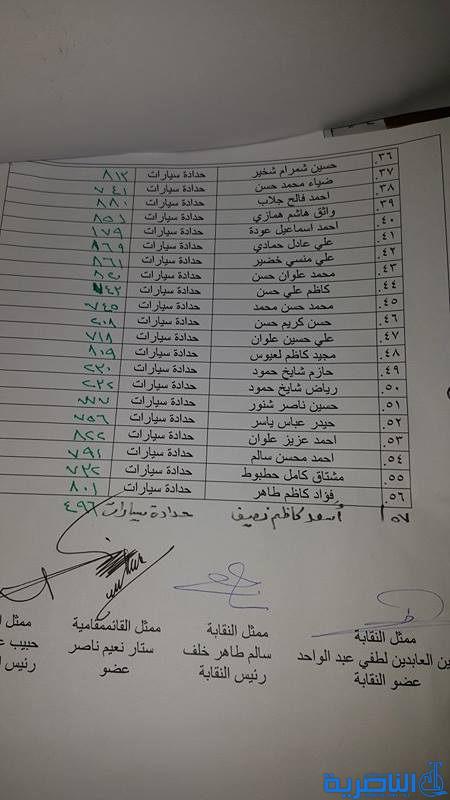 ٣٦. حسين شمرام شخير حدادة سيارات ٨١٢
٣٧. ضياء محمد حسن حدادة سيارات ٧٤١
٣٨. احمد فالح جلاب حدادة سيارات ٨٨٠
٣٩. واثق هاشم همازي حدادة سيارات ٨٥١
٤٠. احمد اسماعيل عودة حدادة سيارات ١٧٩
٤١. علي عادل حمادي حدادة سيارات ٨٦٩
٤٢. علي منسي خضير حدادة سيارات ٨٦١
٤٣. محمد علوان حسن حدادة سيارات
٤٤. كاظم علي حسن حدادة سيارات ٧٤٢
٤٥. محمد حسن محمد حدادة سيارات ٧٤٥
٤٦. حسن كريم حسن حدادة سيارات
٤٧. علي حسين علوان حدادة سيارات ٧١٨
٤٨. مجيد كاظم لعيوس حدادة سيارات ٨٠٩
٤٩. حازم شايخ حمود حدادة سيارات
٥٠. رياض شايخ حمود حدادة سيارات
٥١. حسين ناصر شنور حدادة سيارات
٥٢. حيدر عباس ياسر حدادة سيارات ٧٥٦
٥٣. احمد عزيز علوان حدادة سيارات ٨٢٢
٥٤. احمد محسن سالم حدادة سيارات ٧٩١
٥٥. مشتاق كامل حطبوط حدادة سيارات ٧٢٢
٥٦. فؤاد كاظم طاهر حدادة سيارات ٨٠١
٥٧ أسعد كاظم نصيف حدادة سيارات ٤٩٦
ممثل النقابة ممثل النقابة ممثل القائممقامية ممثل
العابدين لطفي عبد الواحد سالم طاهر خلف ستار نعيم ناصر حبيب
عضو النقابة رئيس النقابة عضو رئيس
الناصرية